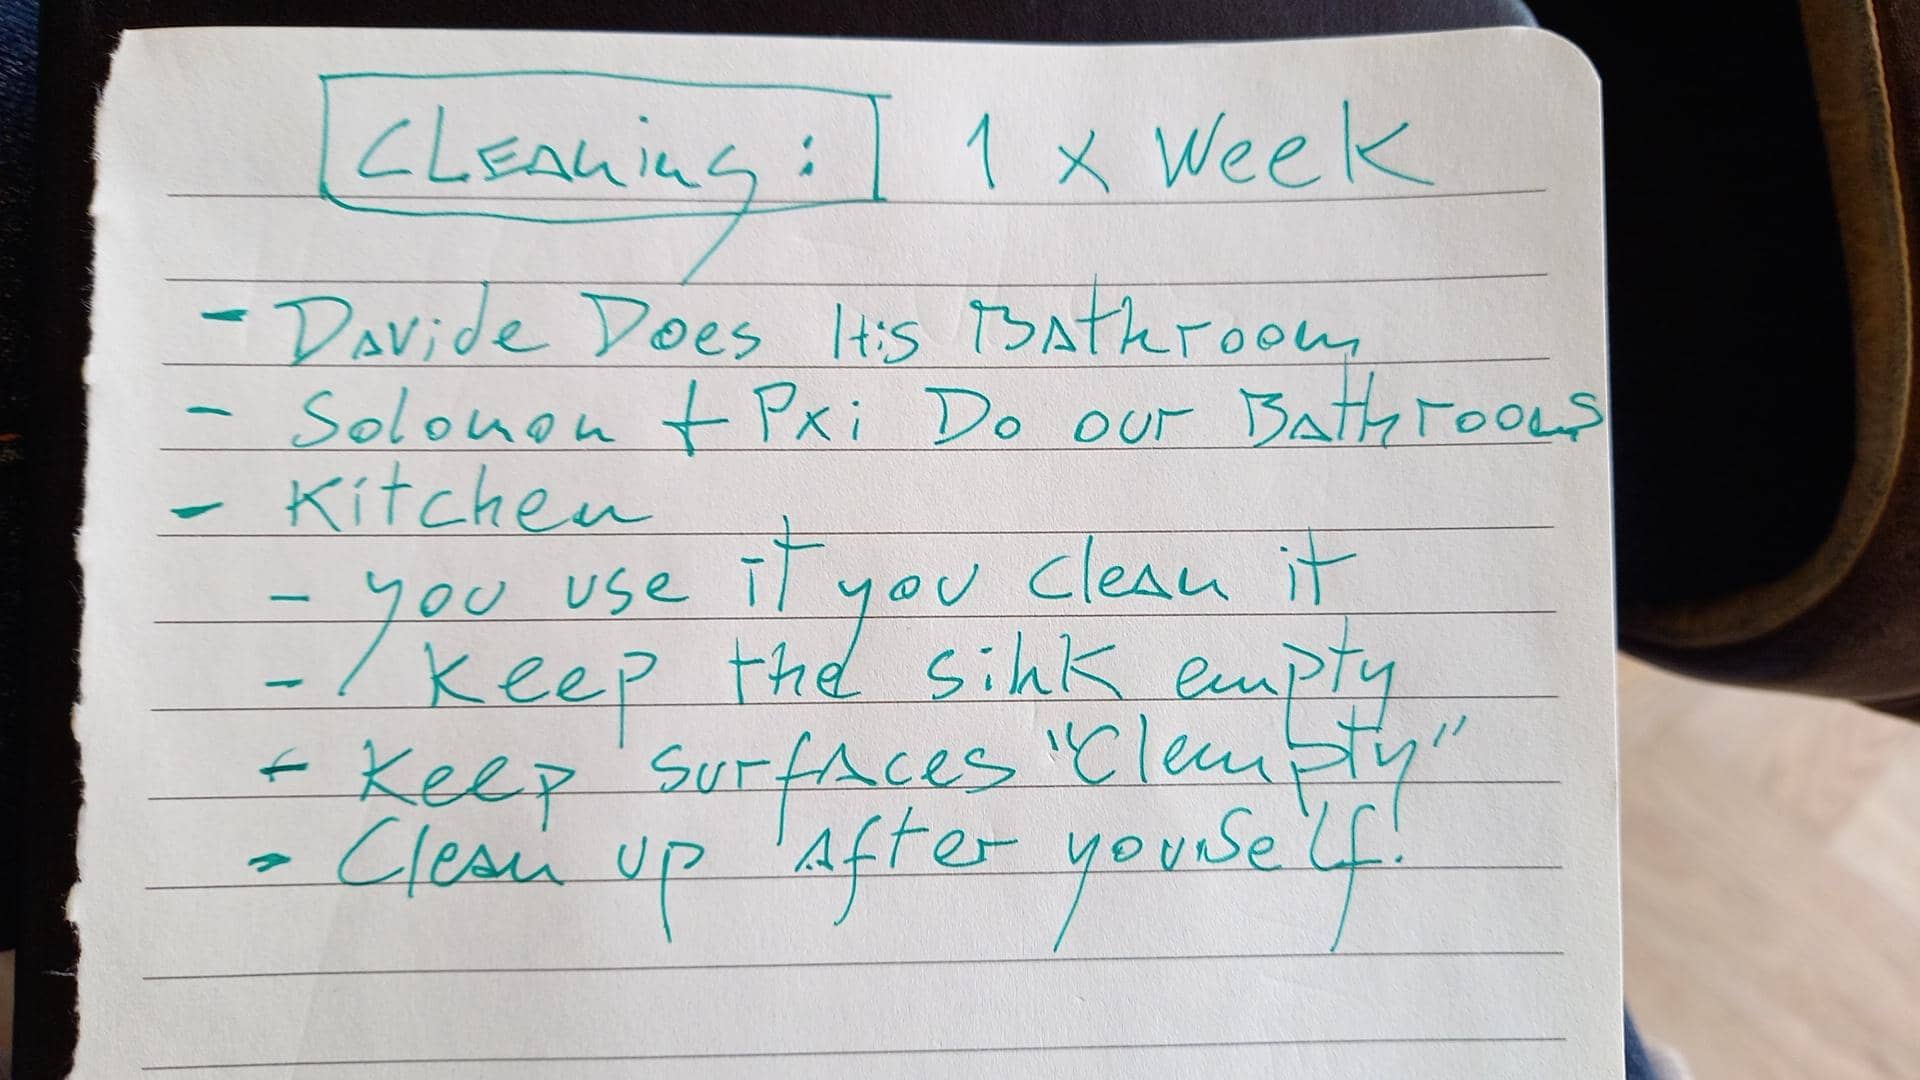 CLEANing: 1 x Week
- DAViDe Does His BAthroom
- Solomon + Pxi Do our BAthrooms
- Kitchen
- you use it you cleAn it
- Keep the sink empty
- Keep surfAces "Clempty"
- CleAn up After yourself!